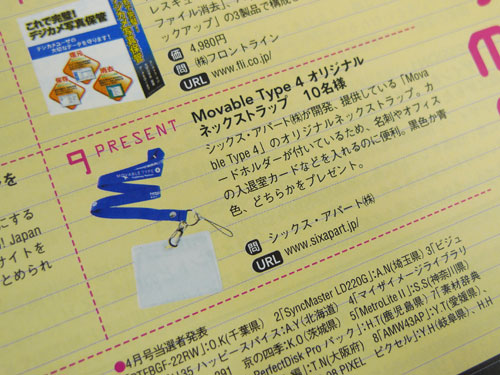 これで完璧!
デジカメ写真保管
デジカメユーザの
大切なデータを守ります!
復元
ファイル消去」、
ックアップ」の3製品で構成さ
価 4,980円
問 ㈱フロントライン
URL www.fli.co.jp/
9 PRESENT
Movable Type 4 オリジナル
ネックストラップ 10名様
シックス・アパート㈱が開発、提供している「Mova
ble Type 4」のオリジナルネックストラップ。カ
ードホルダーが付いているため、名刺やオフィス
の入退室カードなどを入れるのに便利。黒色か青
色、どちらかをプレゼント。
MOVABLE TYPE
問 シックス・アパート㈱
URL www.sixapart.jp/
を
にする
! Japan
サイトを
とめられ
●4月号当選者発表
TEFBGF-22RW」:O.K(千葉県) 2「SyncMaster LD220G」:A.N(埼玉県) 3「ビジュ
ハッピースパイス:A.Y(北海道) 4「マイザイメージライブラリ
291 京の四季:K.O(茨城県) 5「MetroLite II」:S.S(神奈川県)
PerfectDisk Pro パック」:H.T(鹿児島県) 7「素材辞典
:T.N(大阪府) 8「AMW43AP」:Y.T(愛媛県)、
08 PIXEL ピクセル」:Y.H(岐阜県)、H.H